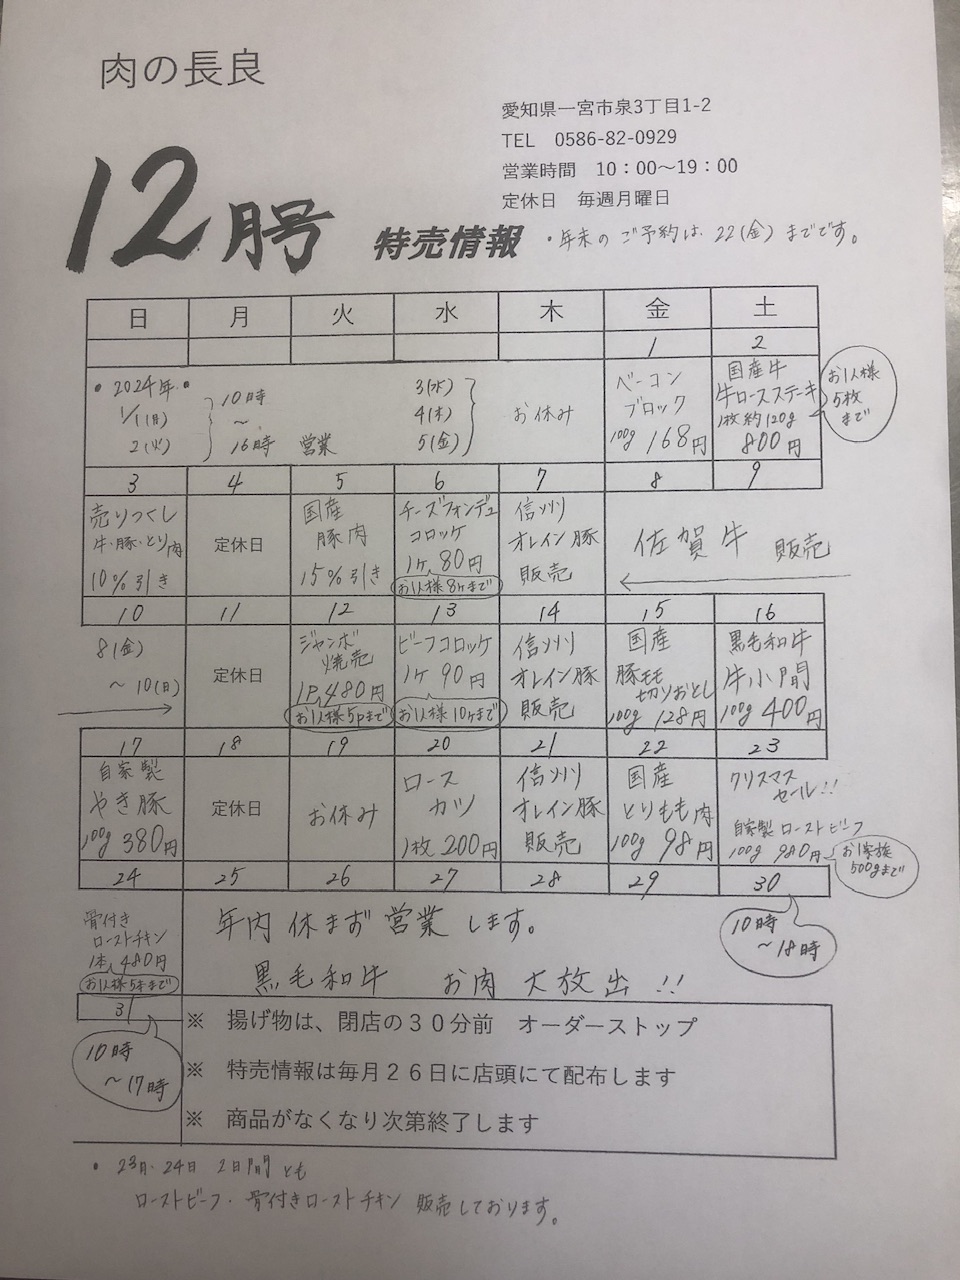 肉の長良
愛知県一宮市泉3丁目1-2
TEL 0586-82-0929
営業時間 10：00〜19：00
定休日 毎週月曜日
12月号 特売情報
・年末のご予約は、22(金)までです。
日 月 火 水 木 金 土
1 2
・2024年・
1/1(月)
2(火)
10時
〜
16時 営業
3(水)
4(木)
5(金)
お休み
ベーコン
ブロック
100g 168円
国産牛
牛ロースステーキ
1枚約120g
800円
お1人様
5枚
まで
3 4 5 6 7 8 9
売りつくし
牛・豚・とり肉
10%引き
定休日
国産
豚肉
15%引き
チーズフォンデュ
コロッケ
1ケ 80円
お1人様8ケまで
信州
オレイン豚
販売
佐賀牛 販売
10 11 12 13 14 15 16
8(金)
〜10(日)
定休日
ジャンボ
焼売
1P 480円
お1人様5pまで
ビーフコロッケ
1ケ 90円
お1人様10ケまで
信州
オレイン豚
販売
国産
豚モモ
切りおとし
100g 128円
黒毛和牛
牛小間
100g 400円
17 18 19 20 21 22 23
自家製
やき豚
100g 380円
定休日
お休み
ロース
カツ
1枚 200円
信州
オレイン豚
販売
国産
とりもも肉
100g 98円
クリスマス
セール!!
自家製ローストビーフ
100g 980円
お1家族
500gまで
24 25 26 27 28 29 30
骨付き
ローストチキン
1本 480円
お1人様5本まで
年内 休まず営業します。
黒毛和牛 お肉 大放出!!
10時
〜18時
31
10時
〜17時
※ 揚げ物は、閉店の３０分前 オーダーストップ
※ 特売情報は毎月２６日に店頭にて配布します
※ 商品がなくなり次第終了します
・23日・24日 2日間とも
ローストビーフ・骨付きローストチキン 販売しております。